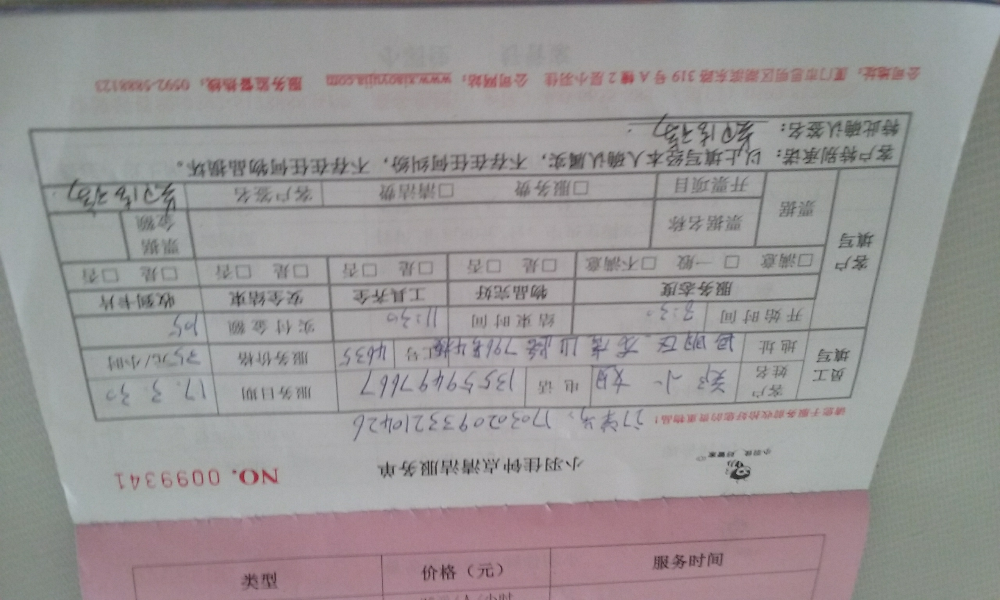 小羽佳 好管家
小羽佳钟点清洁服务单 NO. 0099341
请您于服务前收拾好您的贵重物品! 订单号: 1703020933210426
员工填写 客户姓名 电话 13559497667 服务日期 17.3.30
地址 思明区 796号4号楼 工号 4635 服务价格 35元/小时
开始时间 8:30 结束时间 11:30 实付金额 105
客户填写 服务态度 物品完好 工具齐全 安全结束 收到卡片
□满意 □一般 □不满意 □是 □否 □是 □否 □是 □否 □是 □否
票据 票据名称 票据金额
开票项目 □服务费 □清洁费 客户签名
客户特别承诺: 以上填写经本人确认属实, 不存在任何纠纷, 不存在任何物品损坏。
特此确认签名:
公司地址: 厦门市思明区湖滨东路319号A幢2层小羽佳 公司网站: www.xiaoyujia.com 服务监督热线: 0592-5888123
类型 价格（元） 服务时间